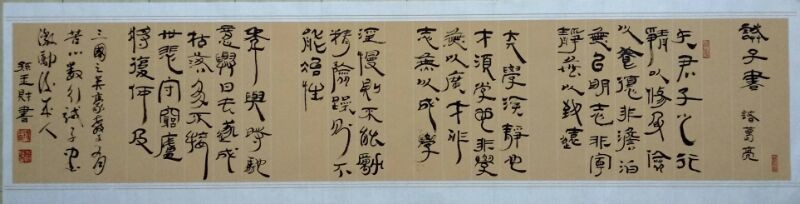 誡子書 諸葛亮
夫君子之行
靜以修身儉
以養德非澹泊
無以明志非寧
靜無以致遠
夫學須靜也
才須學也非學
無以廣才非
志無以成學
淫慢則不能勵
精險躁則不
能冶性
年與時馳
意與日去遂成
枯落多不接
世悲守窮廬
將復何及
三國之英豪
苦心數行誡子書
激勵後來人
王財書